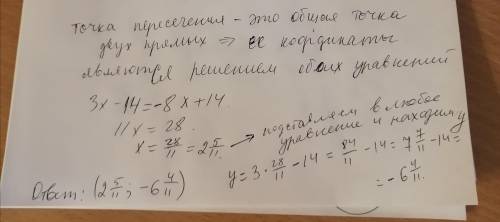 точка пересечения - это общая точка
двух прямых => её координаты
являются решением обоих уравнений
3x - 14 = -8x + 14
11x = 28
x = 28/11 = 2 5/11 → подставляем в любое
уравнение и находим y
y = 3 · 28/11 - 14 = 84/11 - 14 = 7 7/11 - 14 =
= -6 4/11
Ответ: (2 5/11; -6 4/11)